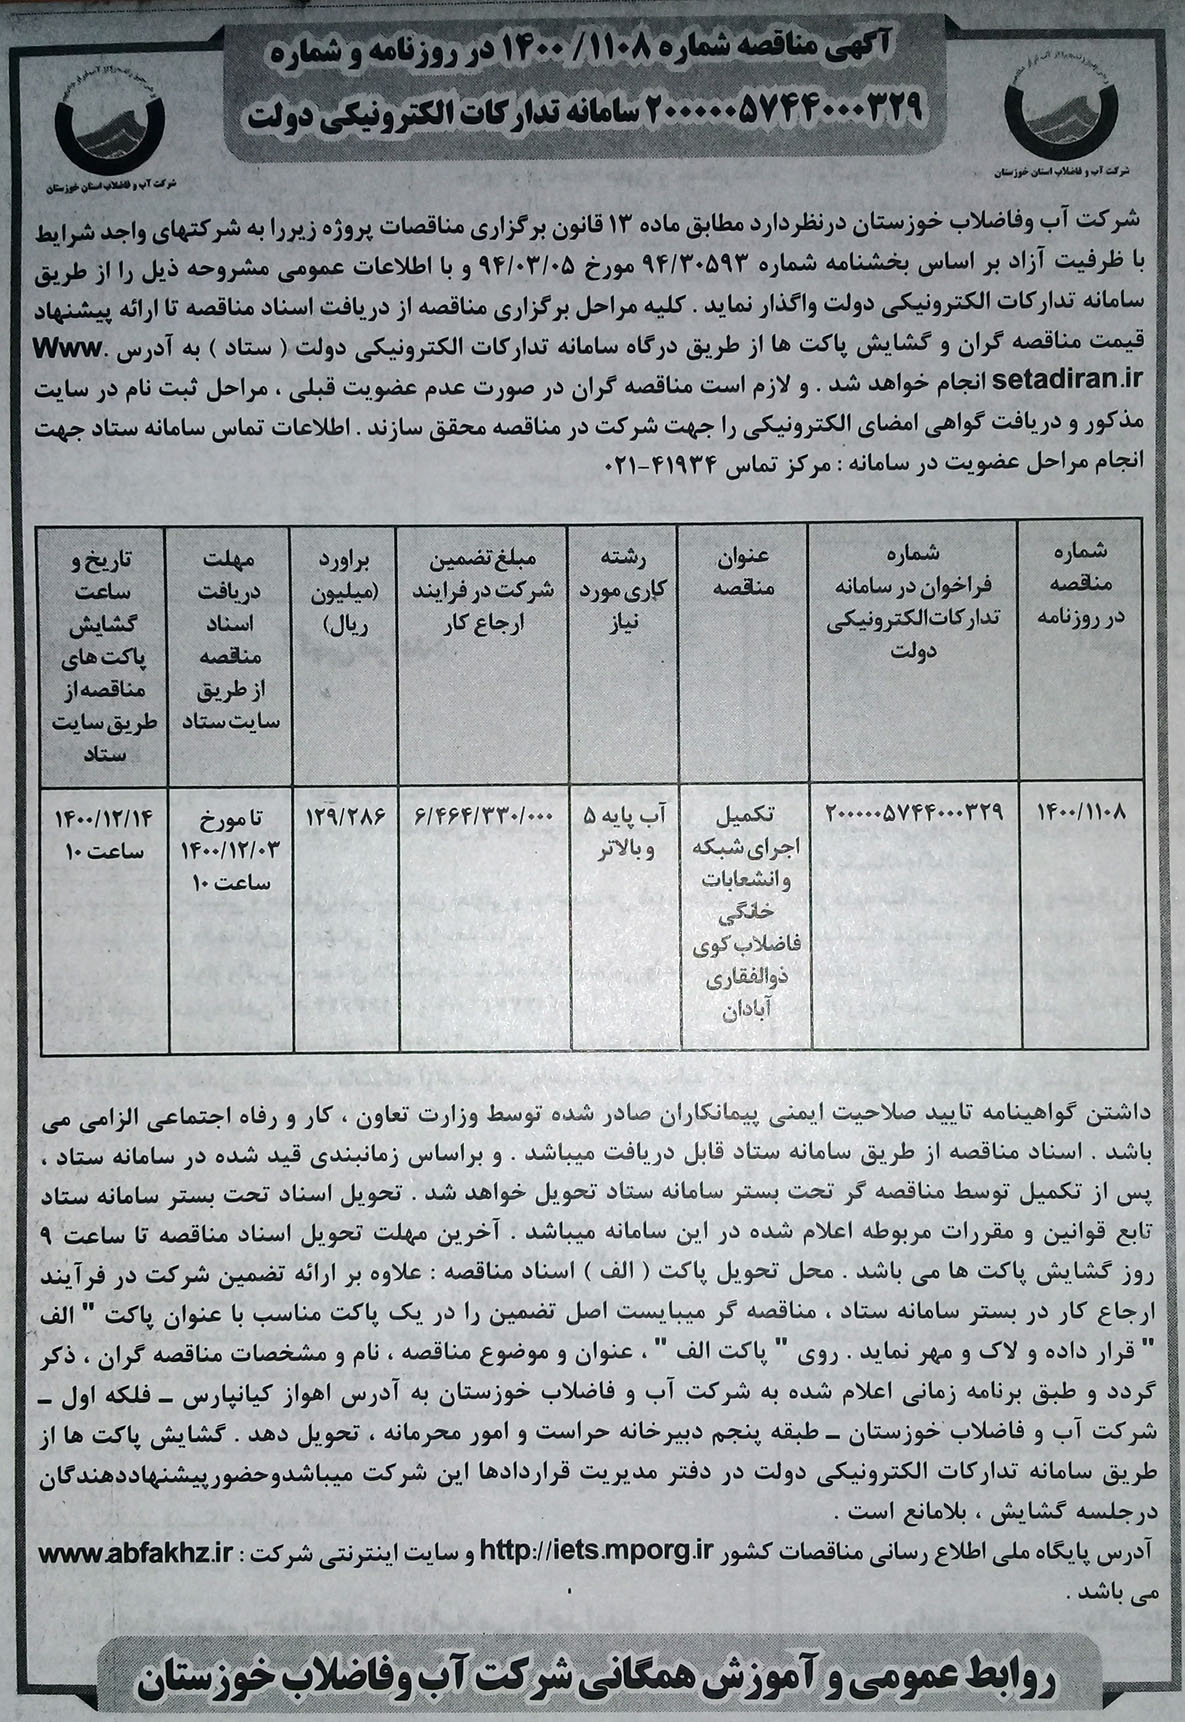 آگهی مناقصه شماره ۱۴۰۰/۱۱۰۸ در روزنامه و شماره
۲۰۰۰۰۰۵۷۴۴۰۰۰۳۲۹ سامانه تدارکات الکترونیکی دولت
شرکت آب و فاضلاب استان خوزستان
شرکت آب و فاضلاب استان خوزستان
شرکت آب وفاضلاب خوزستان درنظردارد مطابق ماده ۱۳ قانون برگزاری مناقصات پروژه زیررا به شرکتهای واجد شرایط
با ظرفیت آزاد بر اساس بخشنامه شماره ۹۴/۳۰۵۹۳ مورخ ۹۴/۰۳/۰۵ و با اطلاعات عمومی مشروحه ذیل را از طریق
سامانه تدارکات الکترونیکی دولت واگذار نماید . کلیه مراحل برگزاری مناقصه از دریافت اسناد مناقصه تا ارائه پیشنهاد
قیمت مناقصه گران و گشایش پاکت ها از طریق درگاه سامانه تدارکات الکترونیکی دولت ( ستاد ) به آدرس Www.
setadiran.ir انجام خواهد شد . و لازم است مناقصه گران در صورت عدم عضویت قبلی ، مراحل ثبت نام در سایت
مذکور و دریافت گواهی امضای الکترونیکی را جهت شرکت در مناقصه محقق سازند . اطلاعات تماس سامانه ستاد جهت
انجام مراحل عضویت در سامانه : مرکز تماس ۴۱۹۳۴-۰۲۱
شماره
مناقصه
در روزنامه
شماره
فراخوان در سامانه
تدارکات الکترونیکی
دولت
عنوان
مناقصه
رشته
کاری مورد
نیاز
مبلغ تضمین
شرکت در فرایند
ارجاع کار
براورد
(میلیون
ریال)
مهلت
دریافت
اسناد
مناقصه
از طریق
سایت ستاد
تاریخ و
ساعت
گشایش
پاکت های
مناقصه از
طریق سایت
ستاد
۱۴۰۰/۱۱۰۸
۲۰۰۰۰۰۵۷۴۴۰۰۰۳۲۹
تکمیل
اجرای شبکه
و انشعابات
خانگی
فاضلاب کوی
ذوالفقاری
آبادان
آب پایه ۵
و بالاتر
۶/۴۶۴/۳۳۰/۰۰۰
۱۲۹/۲۸۶
تا مورخ
۱۴۰۰/۱۲/۰۳
ساعت ۱۰
۱۴۰۰/۱۲/۱۴
ساعت ۱۰
داشتن گواهینامه تایید صلاحیت ایمنی پیمانکاران صادر شده توسط وزارت تعاون ، کار و رفاه اجتماعی الزامی می
باشد . اسناد مناقصه از طریق سامانه ستاد قابل دریافت میباشد . و براساس زمانبندی قید شده در سامانه ستاد ،
پس از تکمیل توسط مناقصه گر تحت بستر سامانه ستاد تحویل خواهد شد . تحویل اسناد تحت بستر سامانه ستاد
تابع قوانین و مقررات مربوطه اعلام شده در این سامانه میباشد . آخرین مهلت تحویل اسناد مناقصه تا ساعت ۹
روز گشایش پاکت ها می باشد . محل تحویل پاکت ( الف ) اسناد مناقصه : علاوه بر ارائه تضمین شرکت در فرآیند
ارجاع کار در بستر سامانه ستاد ، مناقصه گر میبایست اصل تضمین را در یک پاکت مناسب با عنوان پاکت " الف
" قرار داده و لاک و مهر نماید . روی " پاکت الف " ، عنوان و موضوع مناقصه ، نام و مشخصات مناقصه گران ، ذکر
گردد و طبق برنامه زمانی اعلام شده به شرکت آب و فاضلاب خوزستان به آدرس اهواز کیانپارس ـ فلکه اول ـ
شرکت آب و فاضلاب خوزستان ـ طبقه پنجم دبیرخانه حراست و امور محرمانه ، تحویل دهد . گشایش پاکت ها از
طریق سامانه تدارکات الکترونیکی دولت در دفتر مدیریت قراردادها این شرکت میباشدوحضورپیشنهاددهندگان
درجلسه گشایش ، بلامانع است .
آدرس پایگاه ملی اطلاع رسانی مناقصات کشور http://iets.mporg.ir و سایت اینترنتی شرکت : www.abfakhz.ir
می باشد .
روابط عمومی و آموزش همگانی شرکت آب وفاضلاب خوزستان